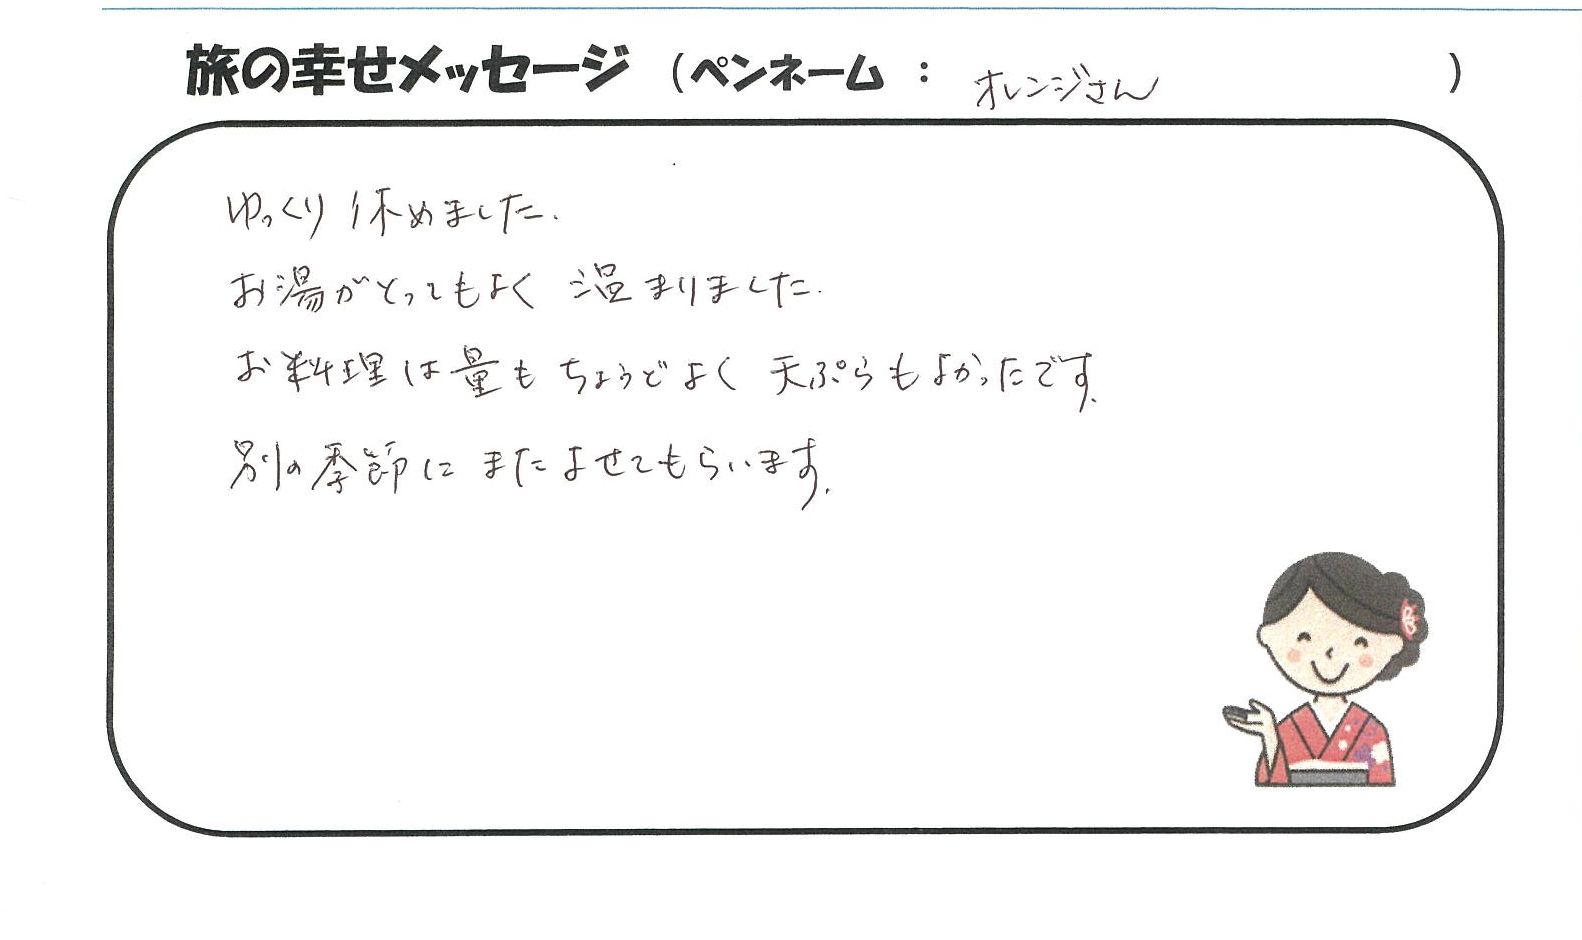 旅の幸せメッセージ (ペンネーム : オレンジさん )
ゆっくり休めました.
お湯がとってもよく 温まりました.
お料理は量もちょうどよく 天ぷらもよかったです.
別の季節にまたよせてもらいます.